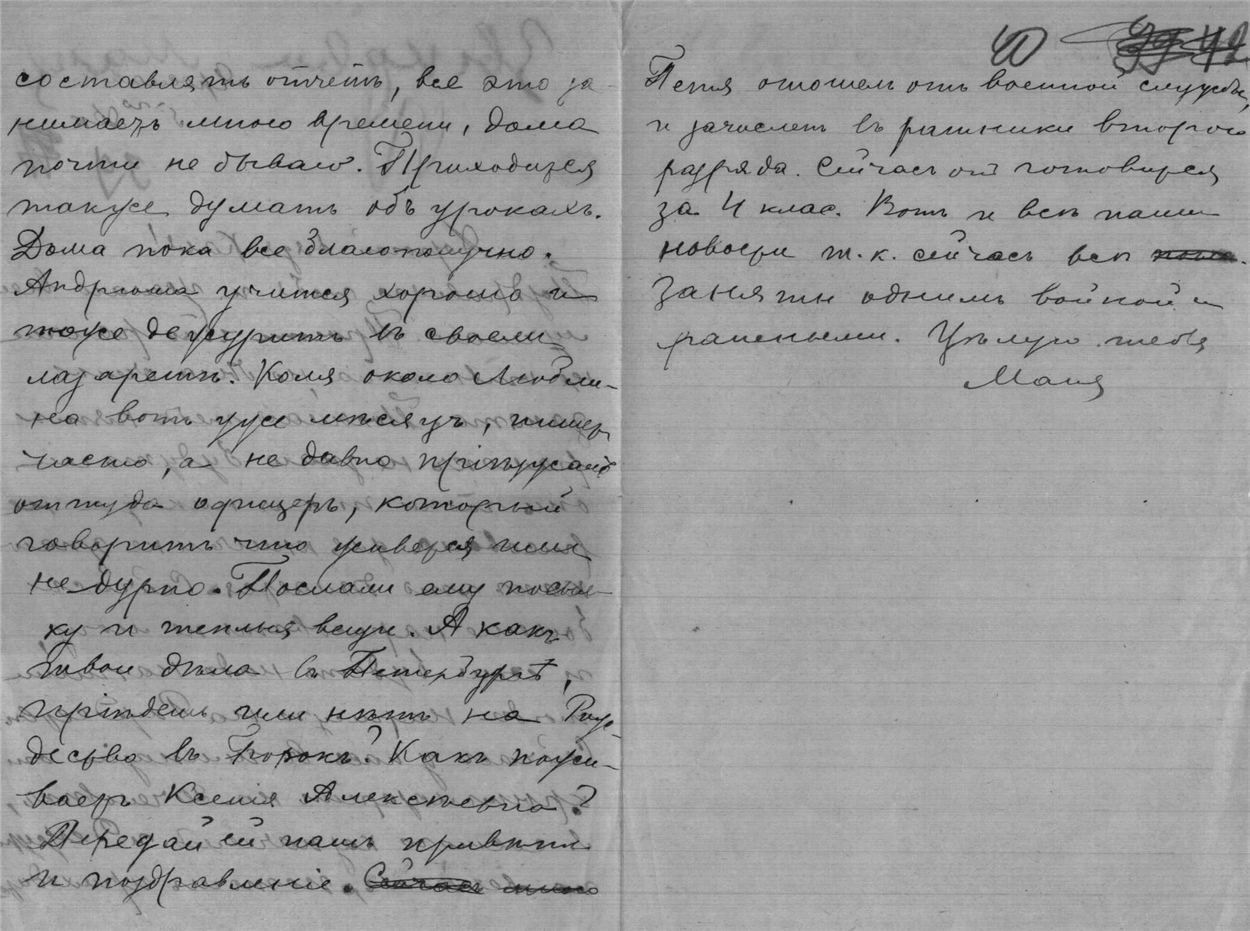 составлять отчетъ, все это за-
нимаетъ много времени, дома
почти не бываю. Приходится
также думать объ урокахъ.
Дома пока все благополучно.
Андрюша учится хорошо и
тоже дежуритъ въ своемъ
лазаретѣ. Коля около Любли-
на вотъ уже мѣсяцъ, пишетъ
часто, а не давно приѣзжалъ
оттуда офицеръ, который
говоритъ что живется имъ
не дурно. Послали ему посыл-
ку и теплыя вещи. А какъ
твои дѣла въ Петербургѣ,
приѣдешь или нѣтъ на Рож-
дество въ Торокъ? Какъ пожи-
ваетъ Ксенія Алексѣевна?
Передай ей нашъ привѣтъ
и поздравленіе. Сейчасъ много
40 42
Петя отошелъ отъ военной службы,
и зачисленъ въ ратники второго
разряда. Сейчасъ онъ готовится
за 4 клас. Вотъ и всѣ наши
новости т.к. сейчасъ всѣ
заняты однимъ войной и
ранеными. Цѣлую тебя
Маня